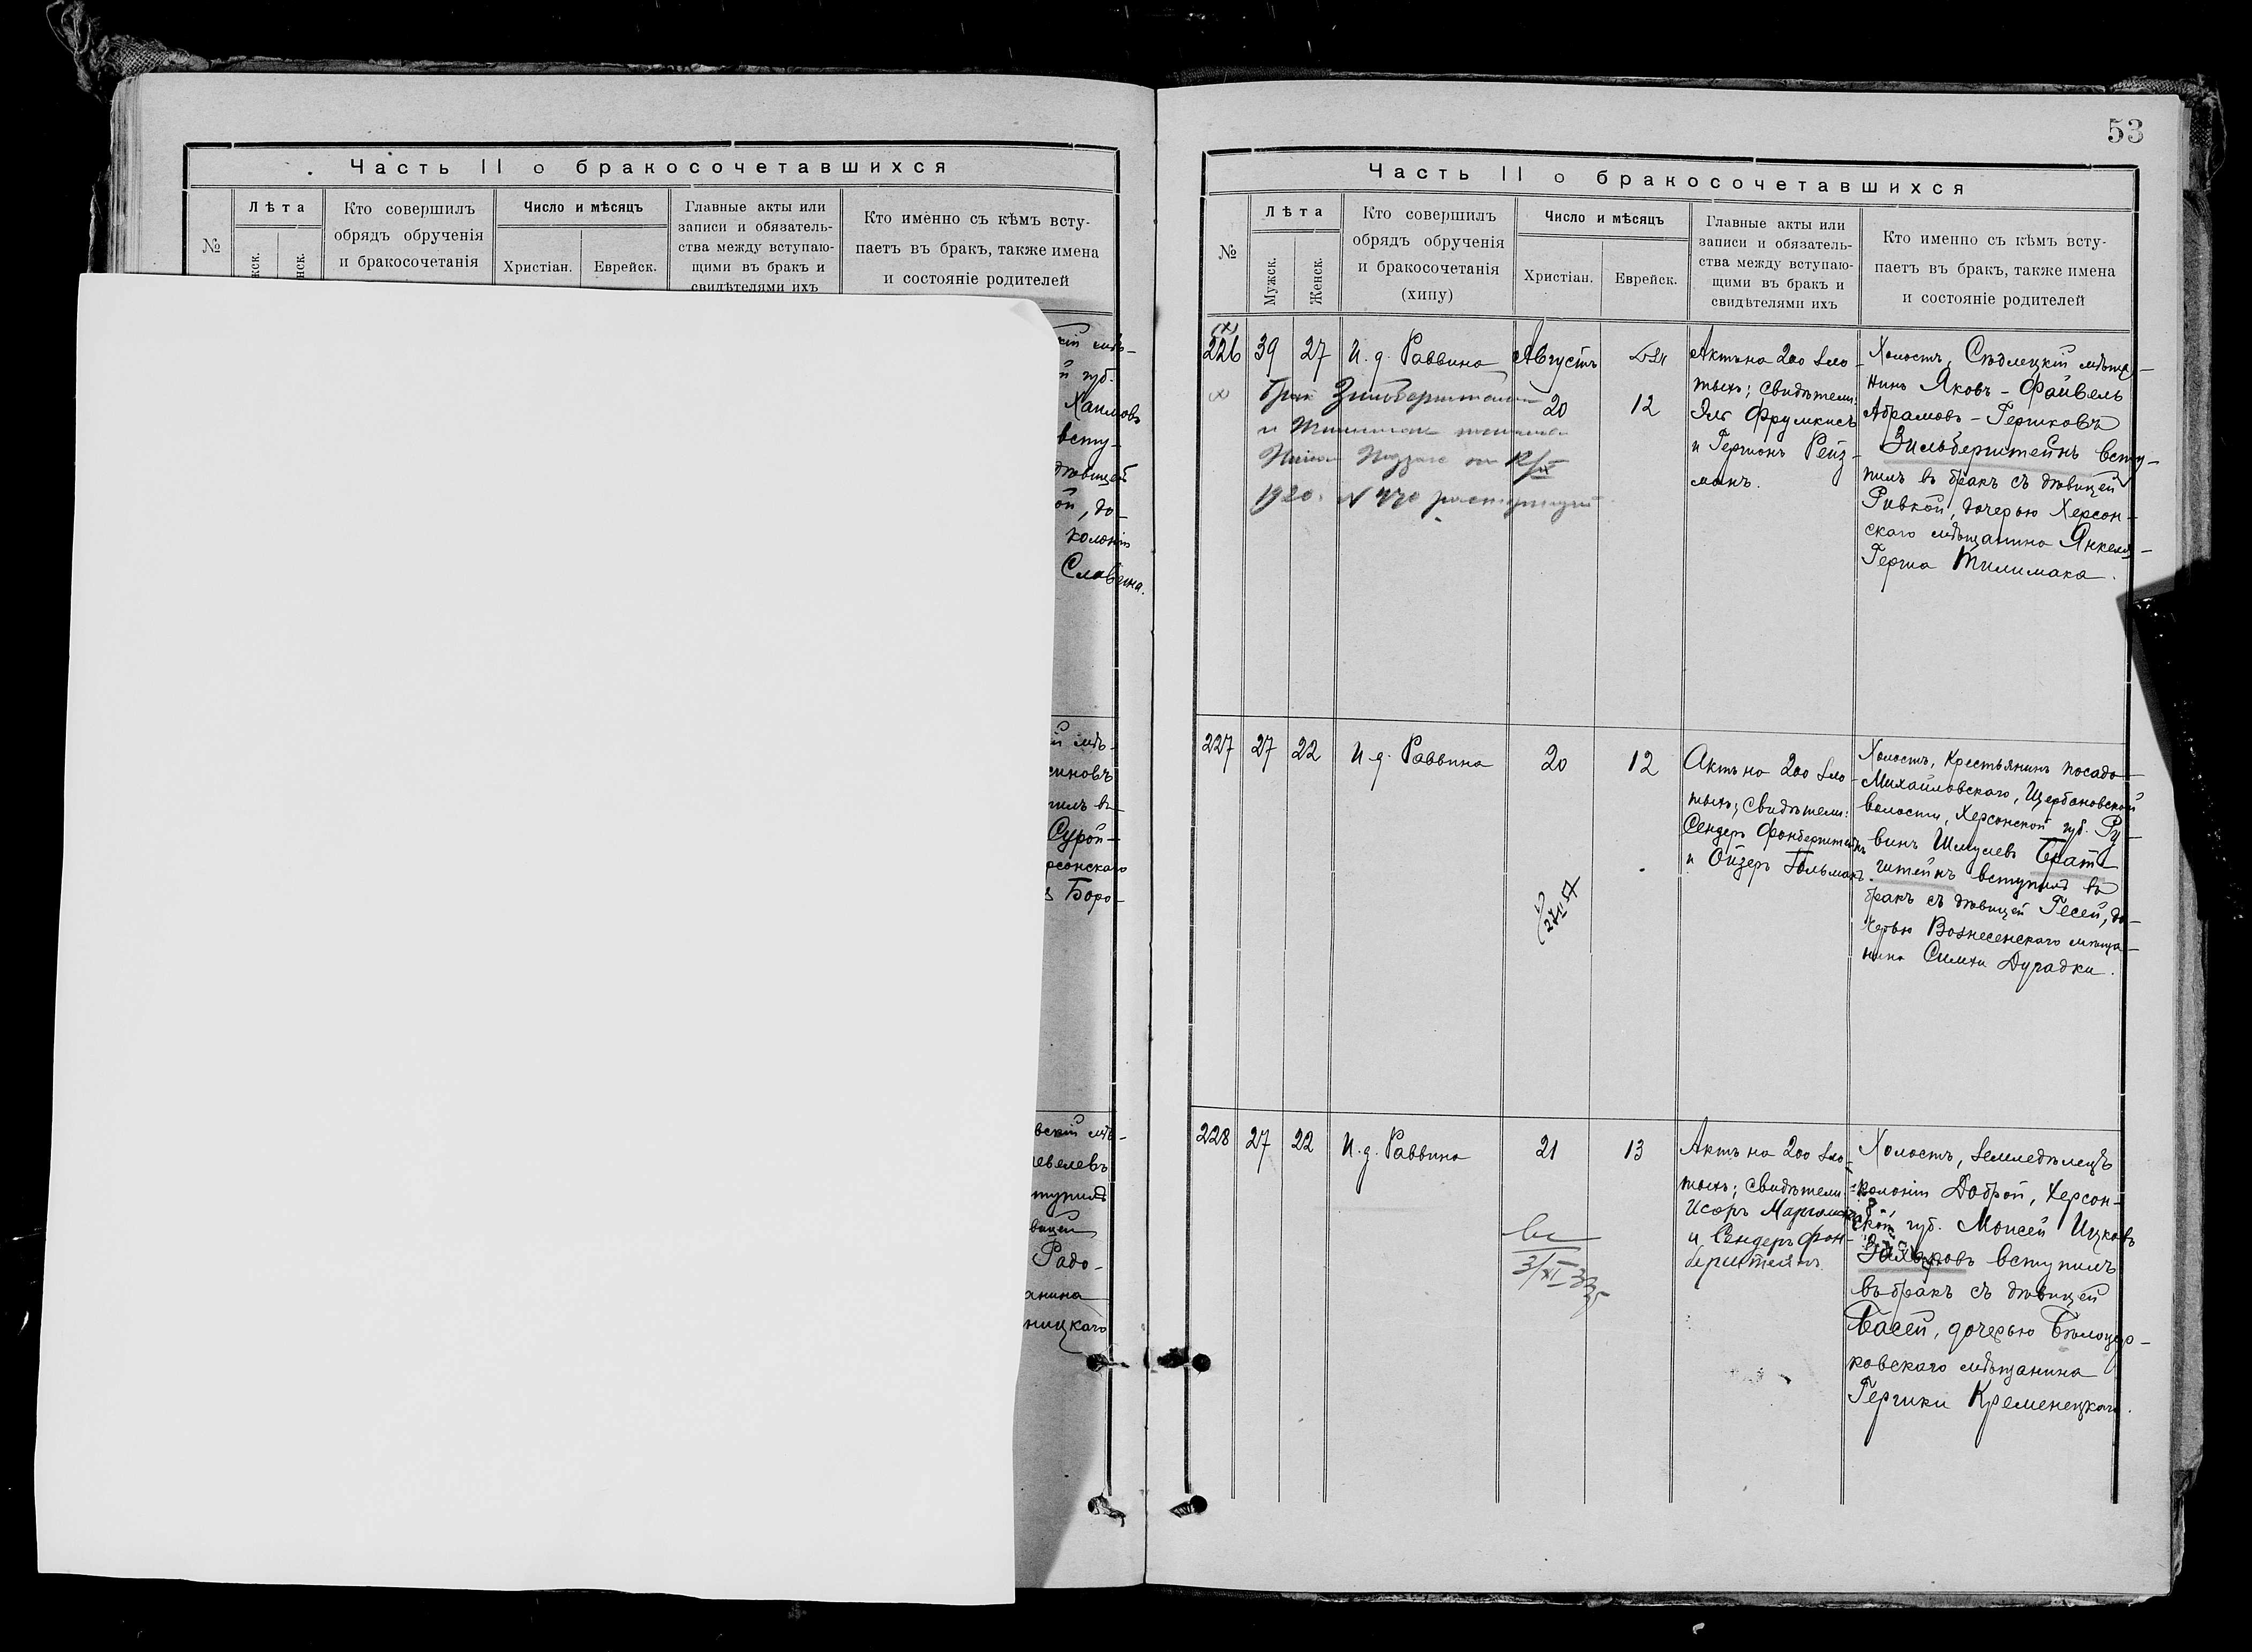 Часть II о бракосочетавшихся
№
Лѣта
кск.
нск.
Кто совершилъ
обрядъ обрученія
и бракосочетанія
Число и мѣсяцъ
Христіан.
Еврейск.
Главные акты или
записи и обязатель-
ства между вступаю-
щими въ бракъ и
свидѣтелями ихъ
Кто именно съ кѣмъ всту-
паетъ въ бракъ, также имена
и состояніе родителей
кій мѣ-
й губ.
Хаимовъ
всту-
дѣвицей
ой, до-
колоніи
Славина.
й мѣ-
синовъ
пилъ въ
Сурой-
рсонскаго
Боро-
вскій мѣ-
евелевъ
тупилъ
вицей
Радо-
анина
ницкаго
53
Часть II о бракосочетавшихся
№
Лѣта
Мужск.
Женск.
Кто совершилъ
обрядъ обрученія
и бракосочетанія
(хипу)
Число и мѣсяцъ
Христіан.
Еврейск.
Главные акты или
записи и обязатель-
ства между вступаю-
щими въ бракъ и
свидѣтелями ихъ
Кто именно съ кѣмъ всту-
паетъ въ бракъ, также имена
и состояніе родителей
226
39
27
И. д. Раввина
Августъ
20
12
Актъ на 200 зло-
тыхъ; свидѣтели:
Эля Фрумкисъ
и Гершонъ Рейз-
манъ.
Холостъ, Сѣдлецкій мѣща-
нинъ Яковъ-Файвель
Абрамовъ-Гершковъ
Зильберштейнъ всту-
пилъ въ бракъ съ дѣвицей
Ривкой, дочерью Херсон-
скаго мѣщанина Янкеля-
Герша Тилимака.
Брак Зильберштейна
и
1920. N
227
27
22
И. д. Раввина
20
12
Актъ на 200 зло-
тыхъ; свидѣтели:
Сендеръ Фонберштейнъ
и Ойзеръ Гольманъ.
Холостъ, Крестьянинъ посада
Михайловскаго, Щербановской
волости, Херсонской губ. Ру-
винъ Шмулевъ Брат-
штейнъ вступилъ въ
бракъ съ дѣвицей Гесей, до-
черью Вознесенскаго мѣща-
нина Симхи Дурадки.
228
27
22
И. д. Раввина
21
13
Актъ на 200 зло-
тыхъ; свидѣтели:
Исоръ
и Сендеръ Фон-
берштейнъ
Холостъ, земледѣлецъ
колоніи Доброй, Херсон-
ской губ. Моисей Ицковъ
вступилъ
въ бракъ съ дѣвицей
Басей, дочерью Бѣлоцер-
ковскаго мѣщанина
Гершки Кременецкаго.